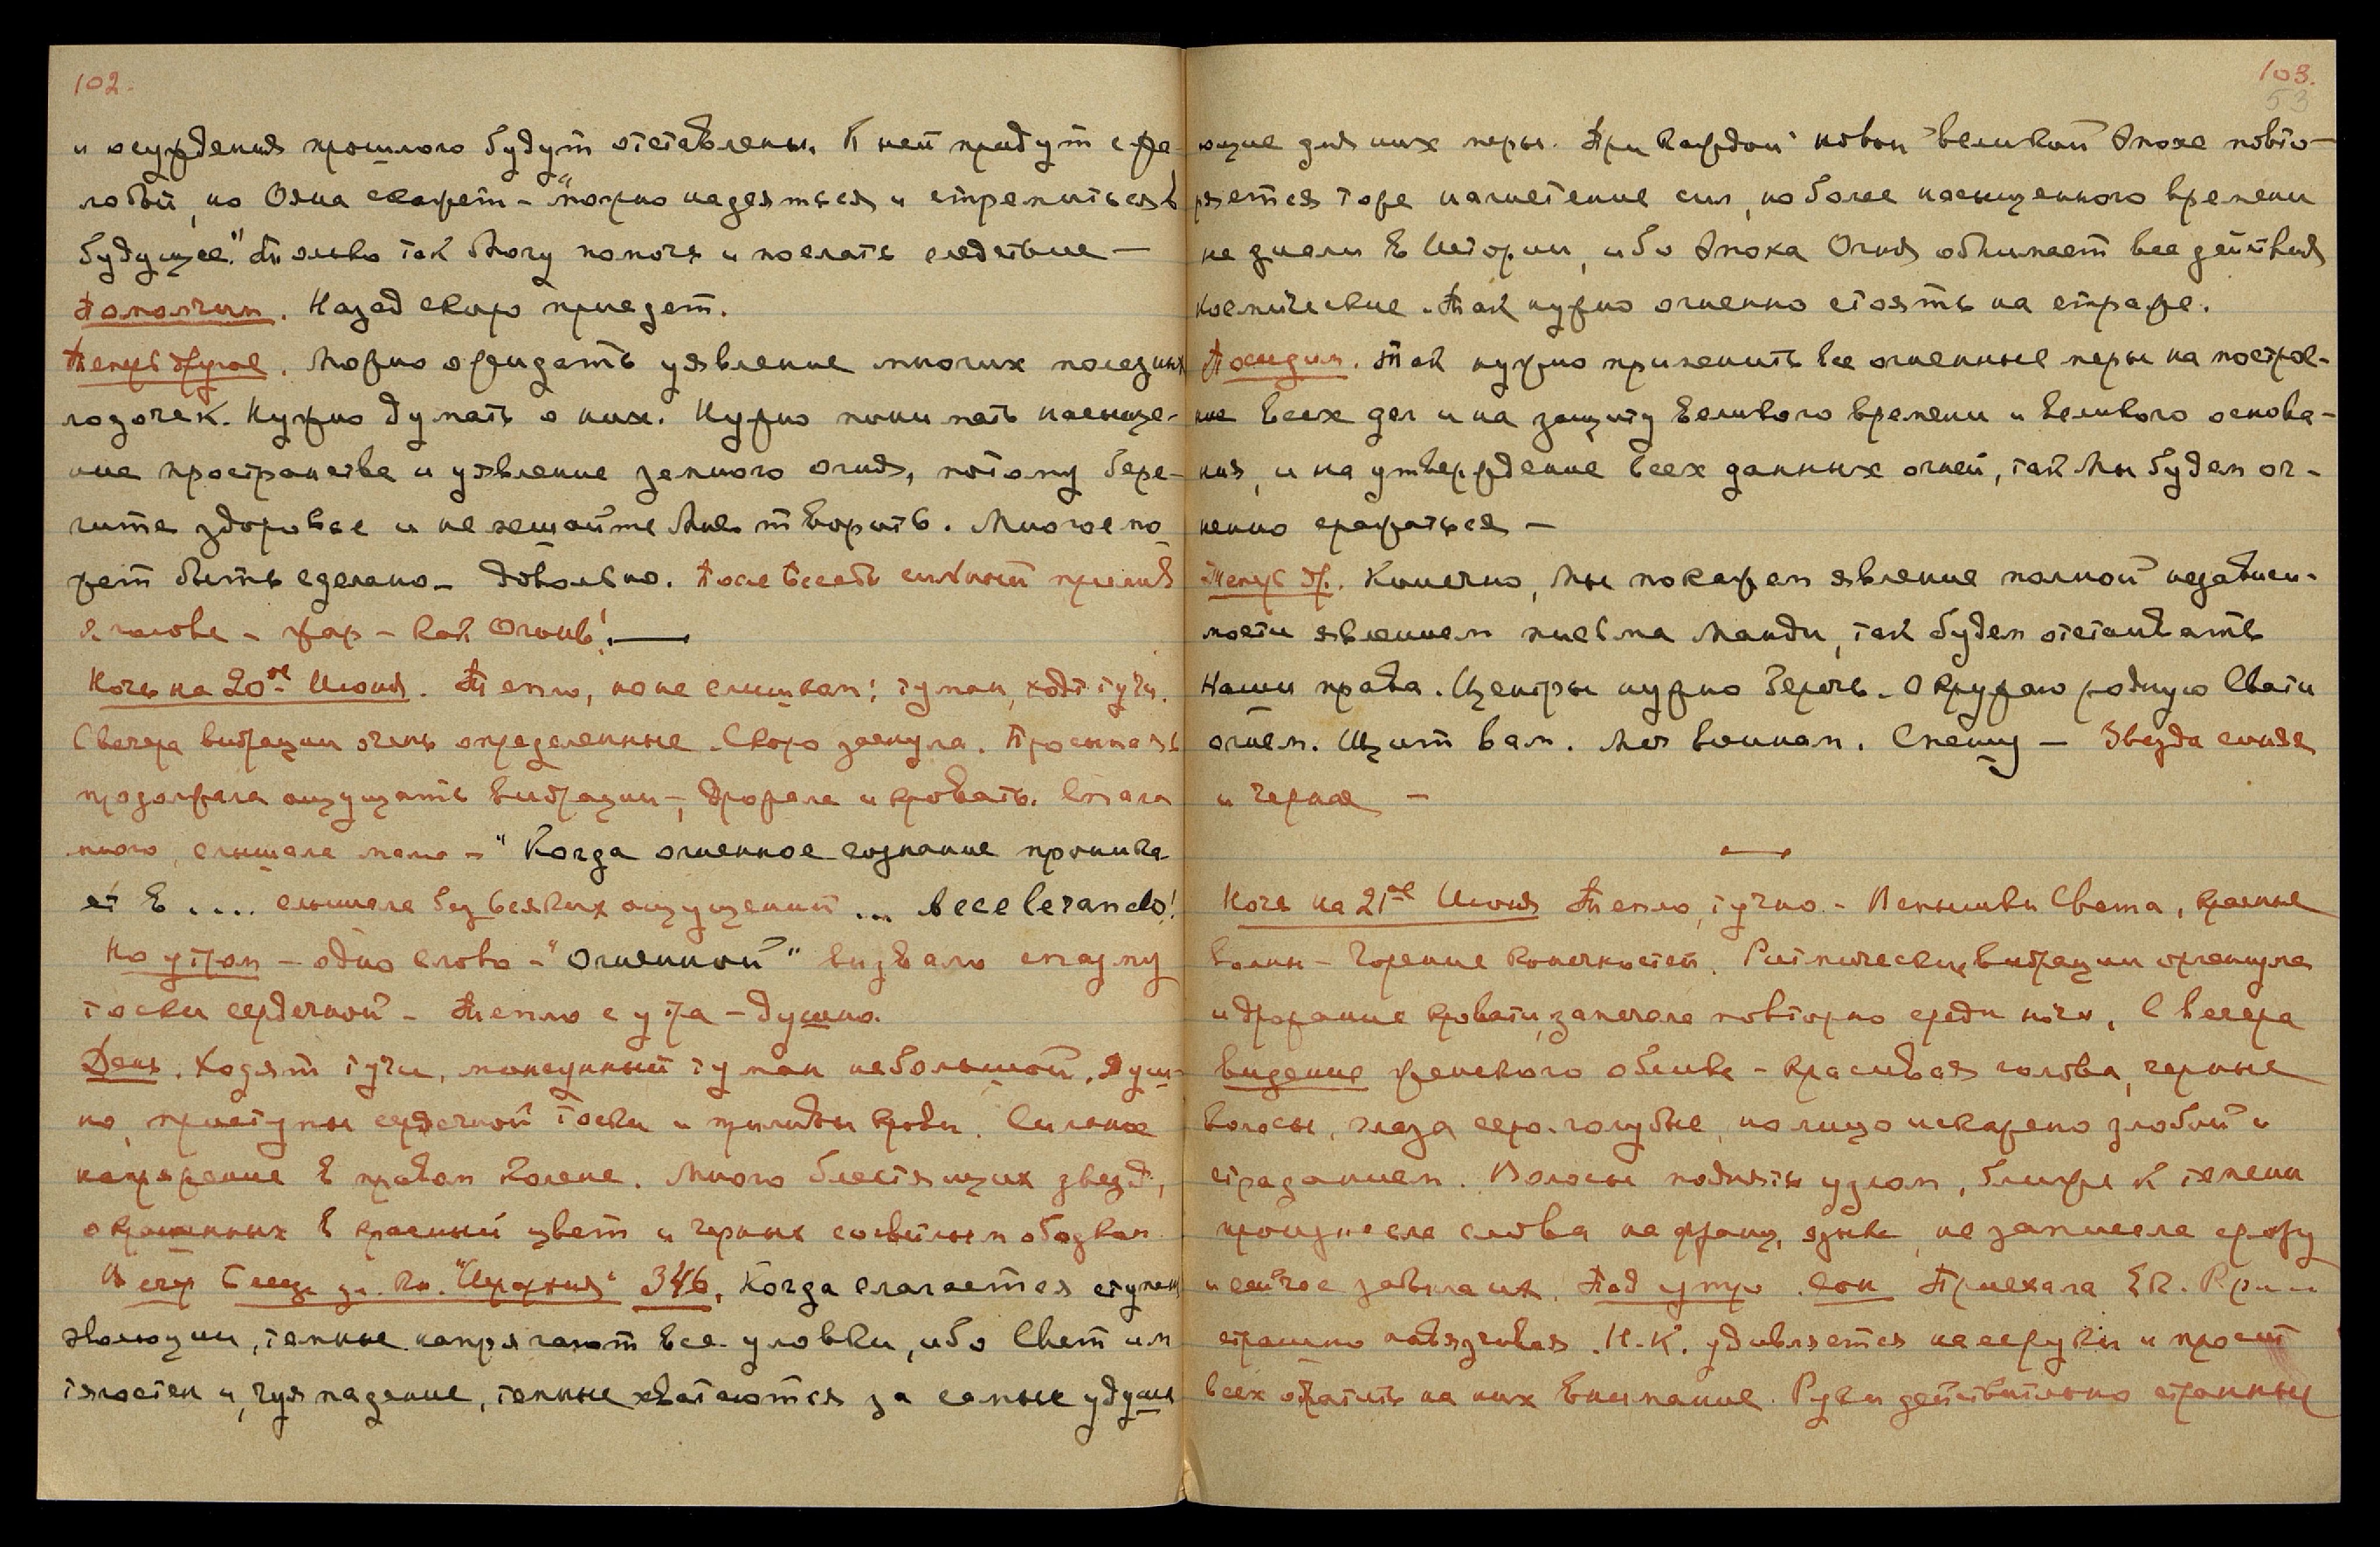 102.
и осуждения прошлого будут отставлены. К ней придут с жа-
лобой, но Ояна скажет – "можно надеяться и стремиться в
будущее." Только так Могу помочь и послать следствие —
Помолчим. Назад скоро приедет.
Теперь другое. Можно ожидать уявление многих полезных
лодочек. Нужно думать о них. Нужно понимать насыще-
ние пространства и уявление земного огня, потому бере-
гите здоровье и не мешайте Мне творить. Многое мо-
жет быть сделано – Довольно. После беседы сильный прилив
к голове – жар – как Огонь! —
Ночь на 20ое Июня. Тепло, но не слишком; туман, ходят тучи.
С вечера вибрации очень определенные. Скоро заснула. Просыпаясь
продолжала ощущать вибрации –, дрожала и кровать. Спала
много, слышала мало – "Когда огненное сознание проника-
ет в .... слышала без всяких ощущений ... accelerando!
На утром – одно слово – "Огненной" вызвало спазму
тоски сердечной – Тепло с утра – душно.
День. Ходят тучи, монсунный туман небольшой. Душ-
но, приступы сердечной тоски и приливы крови. Сильное
напряжение в правом колене. Много блестящих звезд,
окрашенных в красный цвет и черных со светлым ободком
Веч. Бесед. Кн. "Иерархия" 346. Когда слагается ступень
эволюции, темные напрягают все уловки, ибо Свет им
тягостен и, чуя падение, темные хватаются за самые удуша-
103.
53
ющие для них меры. При каждой новой великой Эпохе повто-
ряется тоже нагнетение сил, но более насыщенного времени
не знали в Истории, ибо Эпоха Огня обнимает все действия
космические. Так нужно огненно стоять на страже.
Посидим. Так нужно применить все огненные меры на построе-
ние всех дел и на защиту великого времени и великого основа-
ния, и на утверждение всех данных огней, так Мы будем ог-
ненно сражаться —
Теперь др. Конечно, Мы покажем явление полной независи-
мости явлением письма Манди, так будем отстаивать
Наши права. Центры нужно беречь. Окружаю родную Свати
огнем. Щит вам. Моя воинам. Спешу — Звезда синяя
и черная —
Ночь на 21ое Июня Тепло, тучно – Вспышки Света, красные
волны – Горение конечностей. Ритмические вибрации организма
и дрожание кровати, замечала повторно среди ночи, С вечера
видение женского облика – красивая голова, черные
волосы, глаза серо-голубые, но лицо искажено злобой и
страданием. Волосы подняты узлом, ближе к темени
произнесла слова на франц. языке, не записала сразу
и сейчас забыла их. Под утро сон Приехала Е.К.
страшно навязчивая. Н.К. удивляется на ее руки и просит
всех обратить на них внимание. Руки действительно странные